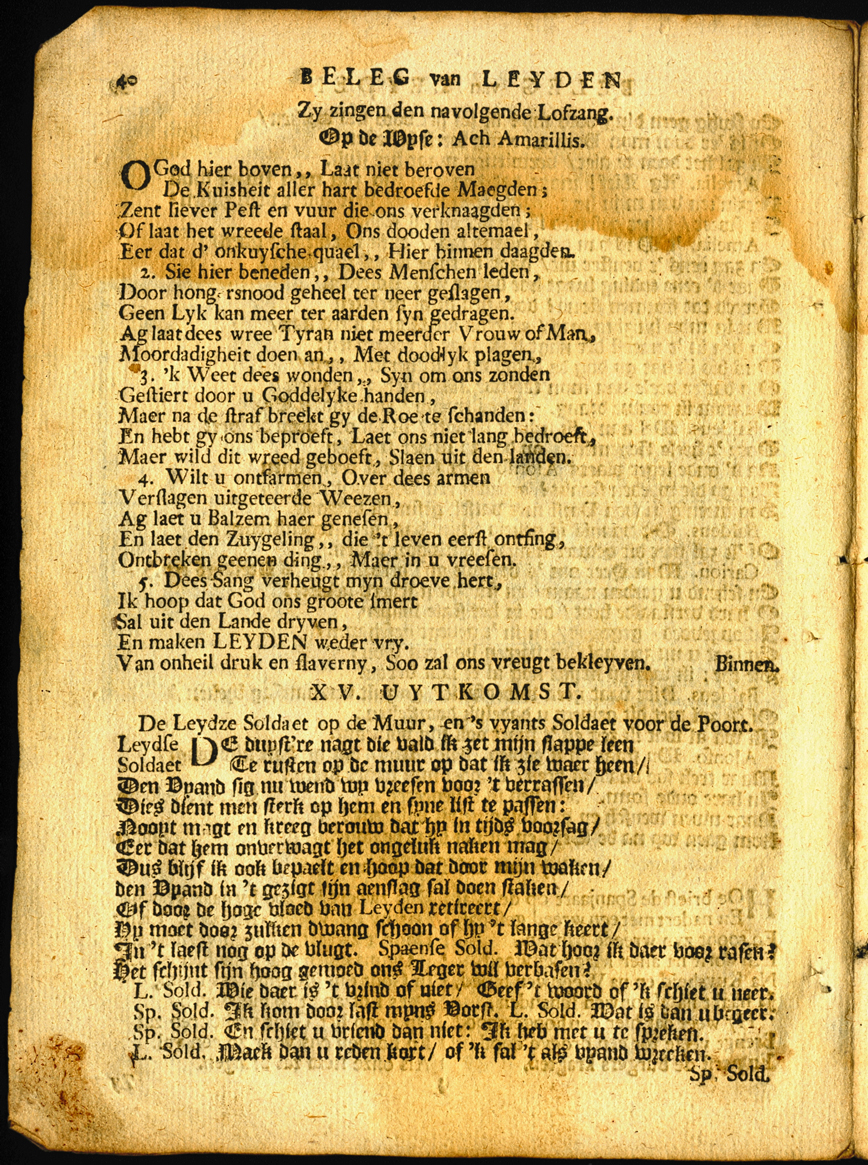 40 BELEG van LEYDEN
Zy zingen den navolgende Lofzang.
Op de Wyse: Ach Amarillis.
O God hier boven,, Laat niet beroven
De Kuisheit aller hart bedroefde Maegden;
Zent liever Pest en vuur die ons verknaagden;
Of laat het wreede staal, Ons dooden altemael,
Eer dat d' onkuysche quael,, Hier binnen daagden.
2. Sie hier beneden,, Dees Menschen leden,
Door hongersnood geheel ter neer geslagen,
Geen Lyk kan meer ter aarden syn gedragen.
Ag laat dees wree Tyran niet meerder Vrouw of Man,,
Moordadigheit doen an,, Met doodlyk plagen,
3. 'k Weet dees wonden,, Syn om ons zonden
Gestiert door u Goddelyke handen,
Maer na de straf breekt gy de Roe te schanden:
En hebt gy ons beproeft, Laet ons niet lang bedroeft,
Maer wild dit wreed geboeft, Slaen uit den landen.
4. Wilt u ontfarmen, Over dees armen
Verslagen uitgeteerde Weezen,
Ag laet u Balzem haer genesen,
En laet den Zuygeling,, die 't leven eerst ontfing,
Ontbreken geenen ding,, Maer in u vreesen.
5. Dees Sang verheugt myn droeve hert,
Ik hoop dat God ons groote smert
Sal uit den Lande dryven,
En maken LEYDEN weder vry.
Van onheil druk en slaverny, Soo zal ons vreugt bekleyven. Binnen.
XV. UYTKOMST.
De Leydze Soldaet op de Muur, en 's vyants Soldaet voor de Poort.
Leydse DE duyst're nagt die vald ik zet mijn slappe leen
Soldaet Te rusten op de muur op dat ik zie waer heen/
Den Vyand sig nu wend wy vreesen voor 't verrassen/
Dies dient men sterk op hem en syne list te passen:
Nooyt magt en kreeg berouw dat hy in tijds voorsag/
Eer dat hem onverwagt het ongeluk naken mag/
Dus blijf ik ook bepaelt en hoop dat door mijn waken/
den Vyand in 't gezigt sijn aenslag sal doen staken/
Of door de hoge vloed van Leyden retireert/
Hy moet door zulken dwang schoon of hy 't lange keert/
In 't laest nog op de vlugt. Spaense Sold. Wat hoor ik daer voor rasen?
Het schijnt sijn hoog gemoed ons Leger wil verbasen?
L. Sold. Wie daer is 't vrind of niet/ Geef 't woord of 'k schiet u neer.
Sp. Sold. Ik kom door last myns Vorst. L. Sold. Wat is dan u begeer.
Sp. Sold. En schiet u vriend dan niet: Ik heb met u te spreken.
L. Sold. Maek dan u reden kort/ of 'k sal 't als vyand wreeken.
Sp. Sold.